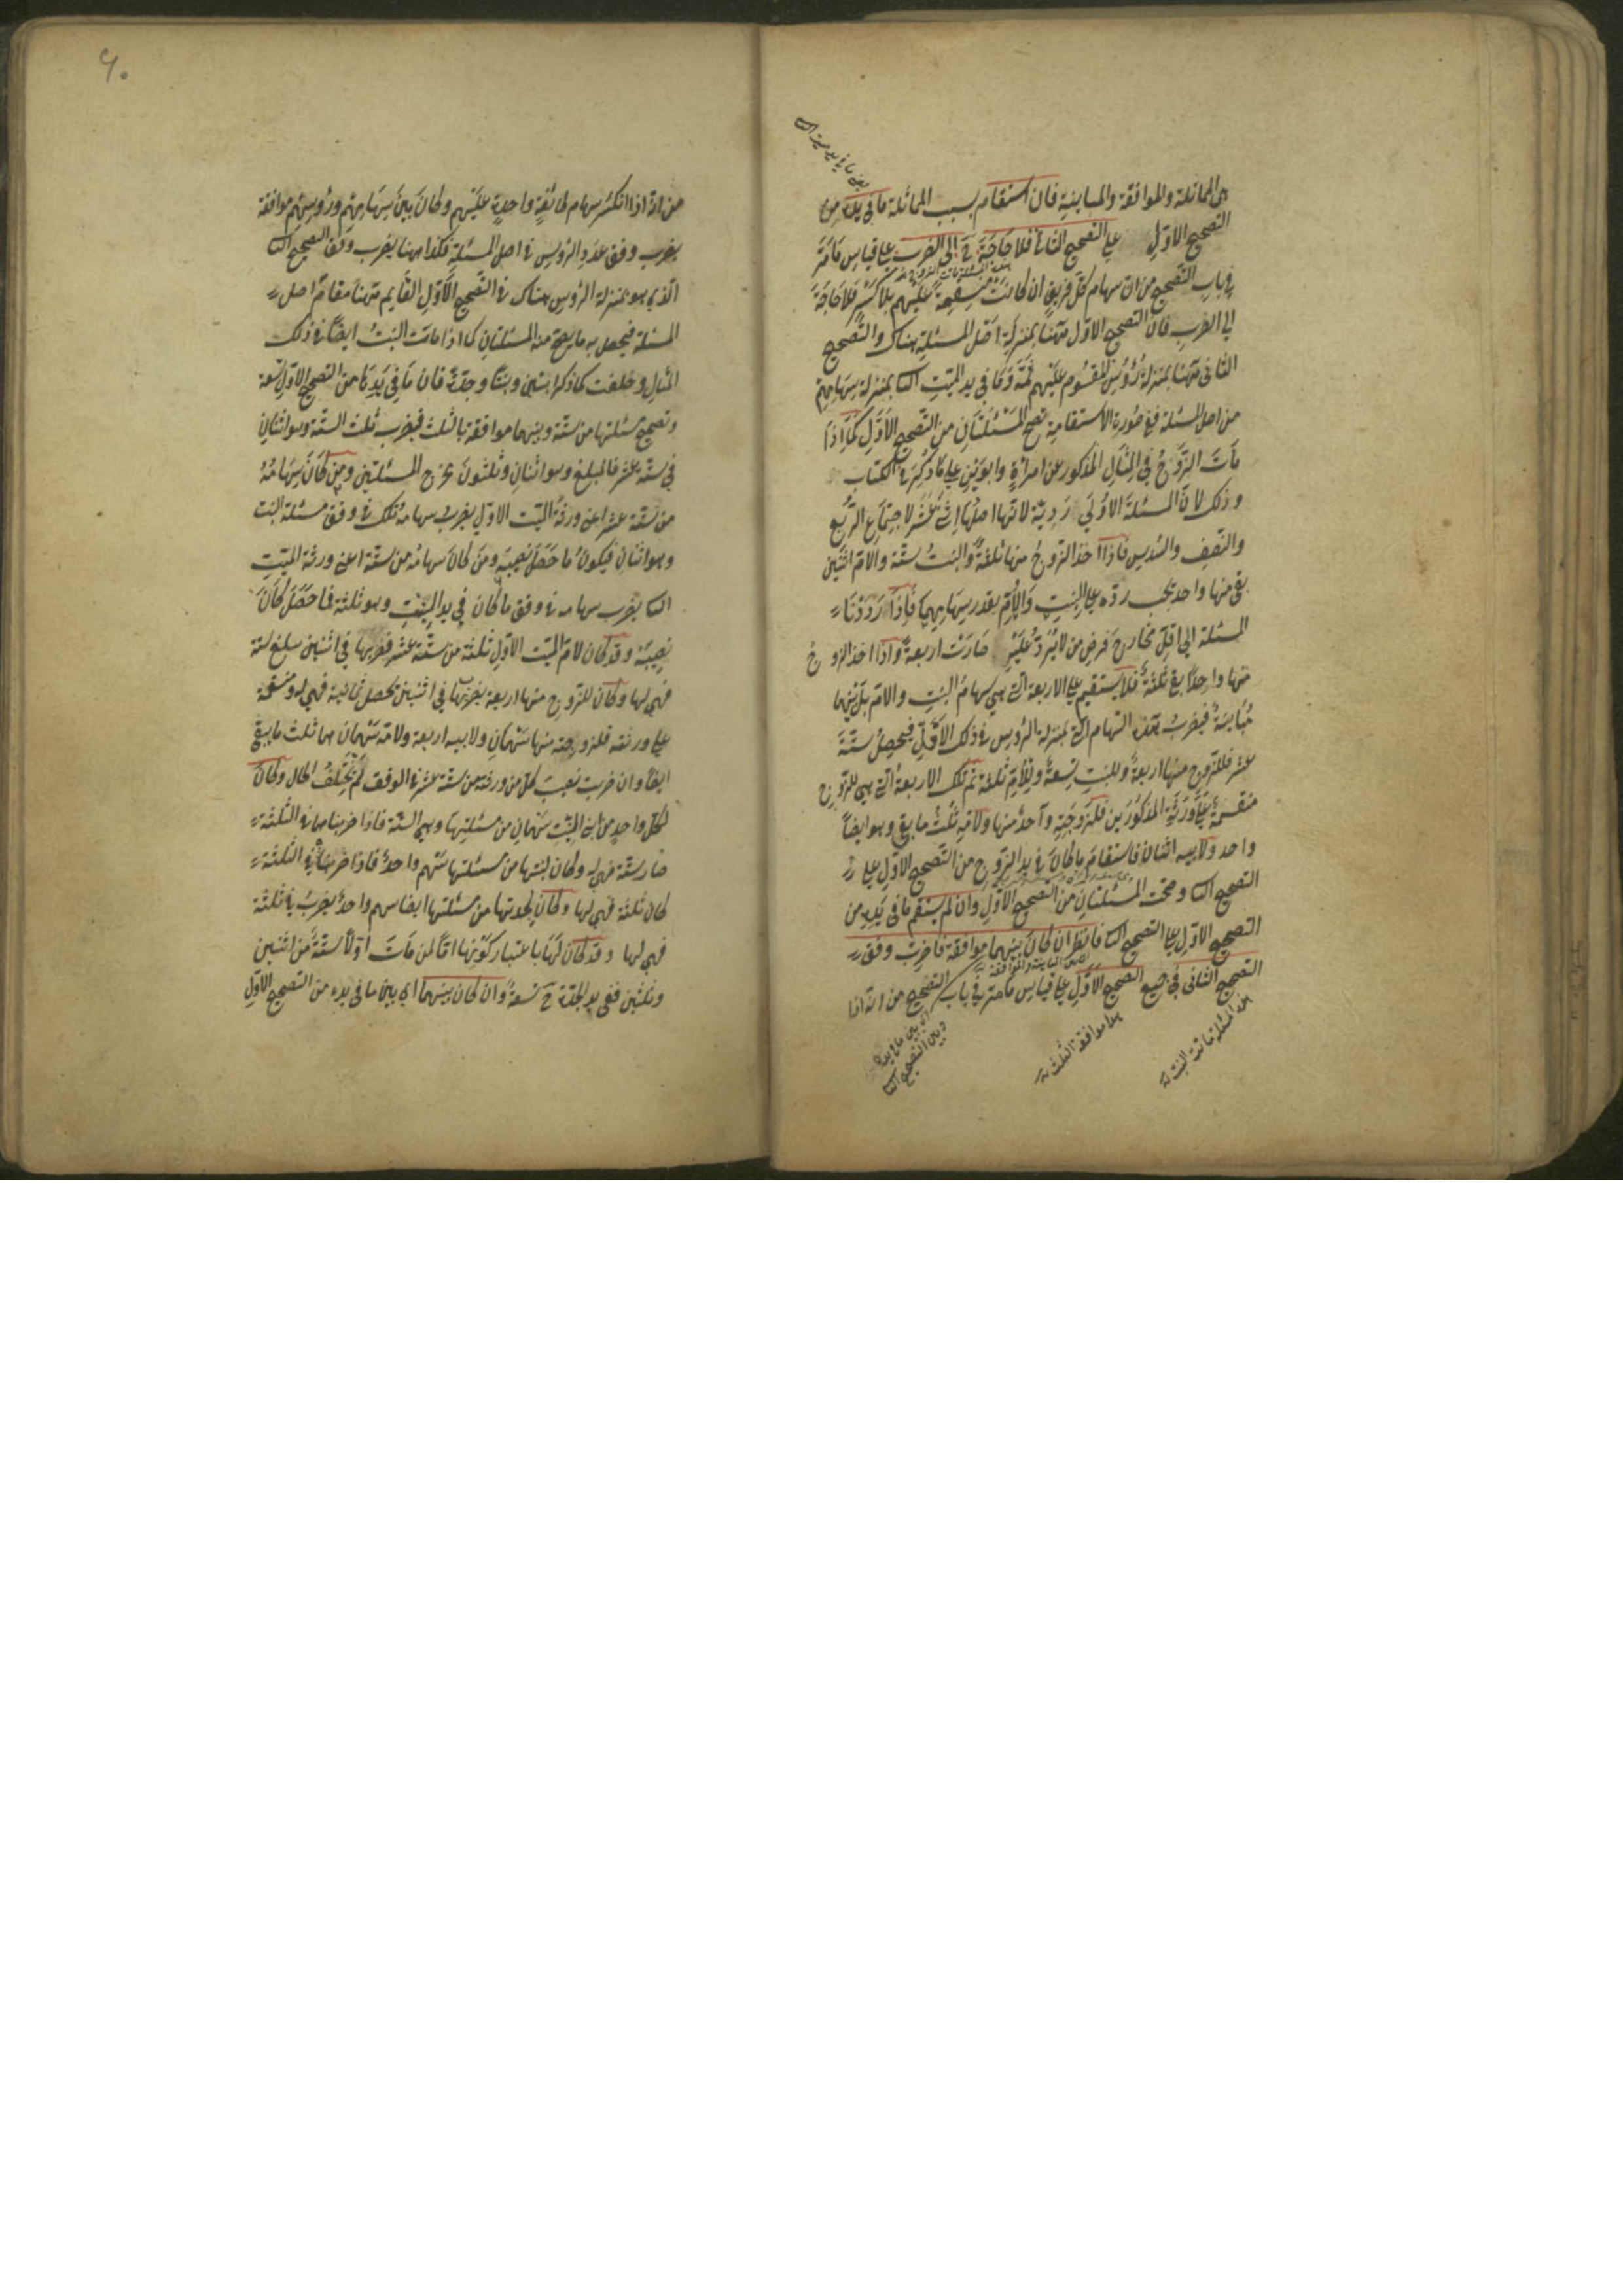 هى المماثلة والموافقة والمباينة فان استقام بسبب المماثلة ما فى يده من
التصحيح الاول على التصحيح الثانى فلا حاجة ح الى الضرب على قياس ما مَرّ
فى باب التصحيح من ان سهام كل فريق ان كانت منقسمة عليهم بلا كسر فلا حاجة
الى الضرب فان التصحيح الاول ههنا بمنزلة اصل المسئلة هناك والتصحيح
الثانى ههنا بمنزلة رؤس المقسوم عليهم ثمة وما فى يد الميت الثا بمنزلة سهامهم
من اصل المسئلة ففى صورة الاستقامة تصح المسئلتان من التصحيح الاول كما اذا
مات الزوج فى المثال المذكور عن امراة وابوين على ما ذكر فى الكتاب
وذلك لان المسئلة الاولى ردية لانها اصلها اثنى عشر لاجتماع الربع
والنصف والسدس فاذا اخذ الزوج منها ثلثة والبنت ستة والام اثنين
بقى منها واحد يجب رده على البنت والام بقدر سهامهما فاذا رددنا
المسئلة الى اقل مخارج فرض من لا يرد عليه صارت اربعة واذا اخذ الزوج
منها واحدا بقى ثلثة فلا يستقيم على الاربعة التى هى سهام البنت والام بل بينهما
مباينة فيضرب هذه السهام التى بمنزلة الرؤس فى ذلك الاقل فيحصل ستة
عشر فللزوج منها اربعة وللبنت تسعة وللام ثلثة ثم تلك الاربعة التى هى للزوج
منقسمة على ورثته المذكورين فلزوجته واحد منها ولامه ثلث ما بقى وهو ايضا
واحد ولابيه اثنان فاستقام ما كان فى يد الزوج من التصحيح الاول على
التصحيح الثا وصحت المسئلتان من التصحيح الاول وان لم يستقم ما فى يده من
التصحيح الاول على التصحيح الثا فانظر ان كان بينهما موافقة فاضرب وفق
التصحيح الثانى فى جميع التصحيح الاول على قياس ما مر فى باب التصحيح من انه اذا
هذه المسئلة ماتت البنت
هذا موافقة الثلث
اى بين ما فى يده
وبين التصحيح الثا
٩٠
من انه اذا انكسر سهام طائفة واحدة عليهم وكان بين سهامهم ورؤسهم موافقة
يضرب وفق عدد الرؤس فى اصل المسئلة فكذا ههنا يضرب وفق التصحيح الثا
الذى هو بمنزلة الرؤس هناك فى التصحيح الاول القايم ههنا مقام اصل
المسئلة فيحصل به ما يصح منه المسئلتان كما اذا ماتت البنت ايضا فى ذلك
المثال وخلفت كما ذكر ابنين وبنتا وجدة فان ما فى يدها من التصحيح الاول تسعة
وتصحيح مسئلتها من ستة وبينهما موافقة بالثلث فيضرب ثلث الستة وهو اثنان
فى ستة عشر فالمبلغ وهو اثنان وثلثون مخرج المسئلتين ومن كان سهامه
من ستة عشر اعنى ورثة الميت الاول يضرب سهامه تلك فى وفق مسئلة البنت
وهو اثنان فيكون ما حصل نصيبه ومن كان سهامه من ستة اعنى ورثة الميت
الثا يضرب سهامه فى وفق ما كان فى يد البنت وهو ثلثة فما حصل كان
نصيبه وقد كان لام الميت الاول ثلثة من ستة عشر فضربها فى اثنين يبلغ ستة
فهى لها وكان للزوج منها اربعة يضربها فى اثنين يحصل ثمانية فهى له ومنقسمة
على ورثته فلزوجته منها سهمان ولابيه اربعة ولامه سهمان هما ثلث ما يبقى
ايضا وان ضربت نصيب كل من ورثته من ستة عشر فى الوفق لم يختلف الحال وكان
لكل واحد من ابنى البنت سهمان من مسئلتها وهى الستة فاذا ضربناهما فى الثلثة
صار ستة فهى له وكان لبنتها من مسئلتها سهم واحد فاذا ضربناه فى الثلثة
كان ثلثة فهى لها وكان لجدتها من مسئلتها ايضا سهم واحد يضرب فى ثلثة
فهى لها وقد كان لها باعتبار كونها اما لمن مات اولا ستة من اثنين
وثلثين ففى يد الجدة ح تسعة وان كان بينهما اى بين ما فى يده من التصحيح الاول